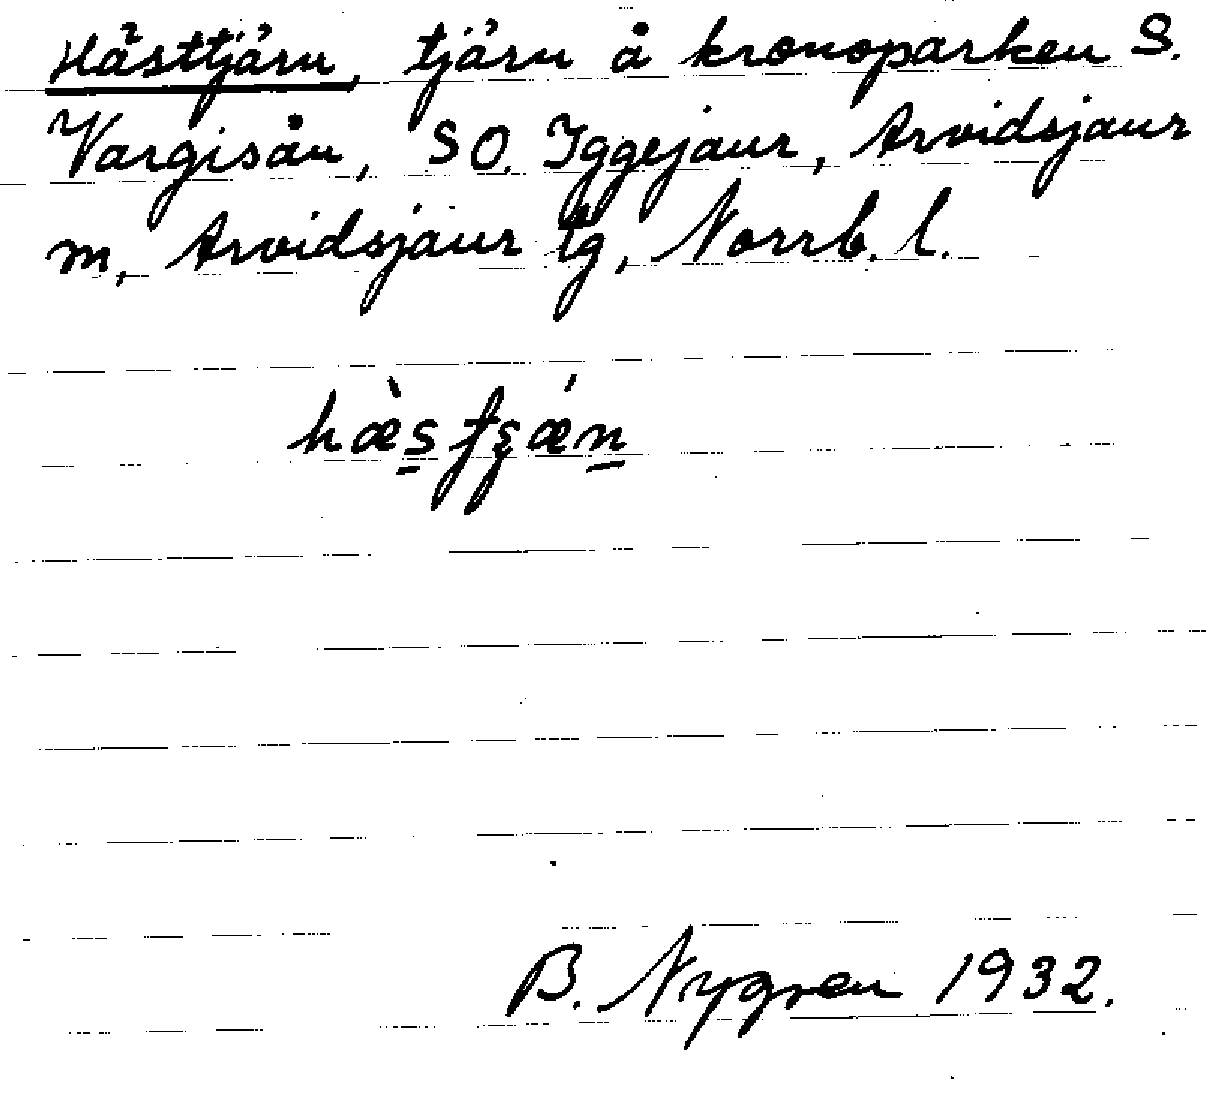 Hästtjärn, tjärn å kronoparken S.
Vargisån, SO. Iggejaur, Arvidsjaur
m, Arvidsjaur tg, Norrb. l.
B. Nygren 1932.